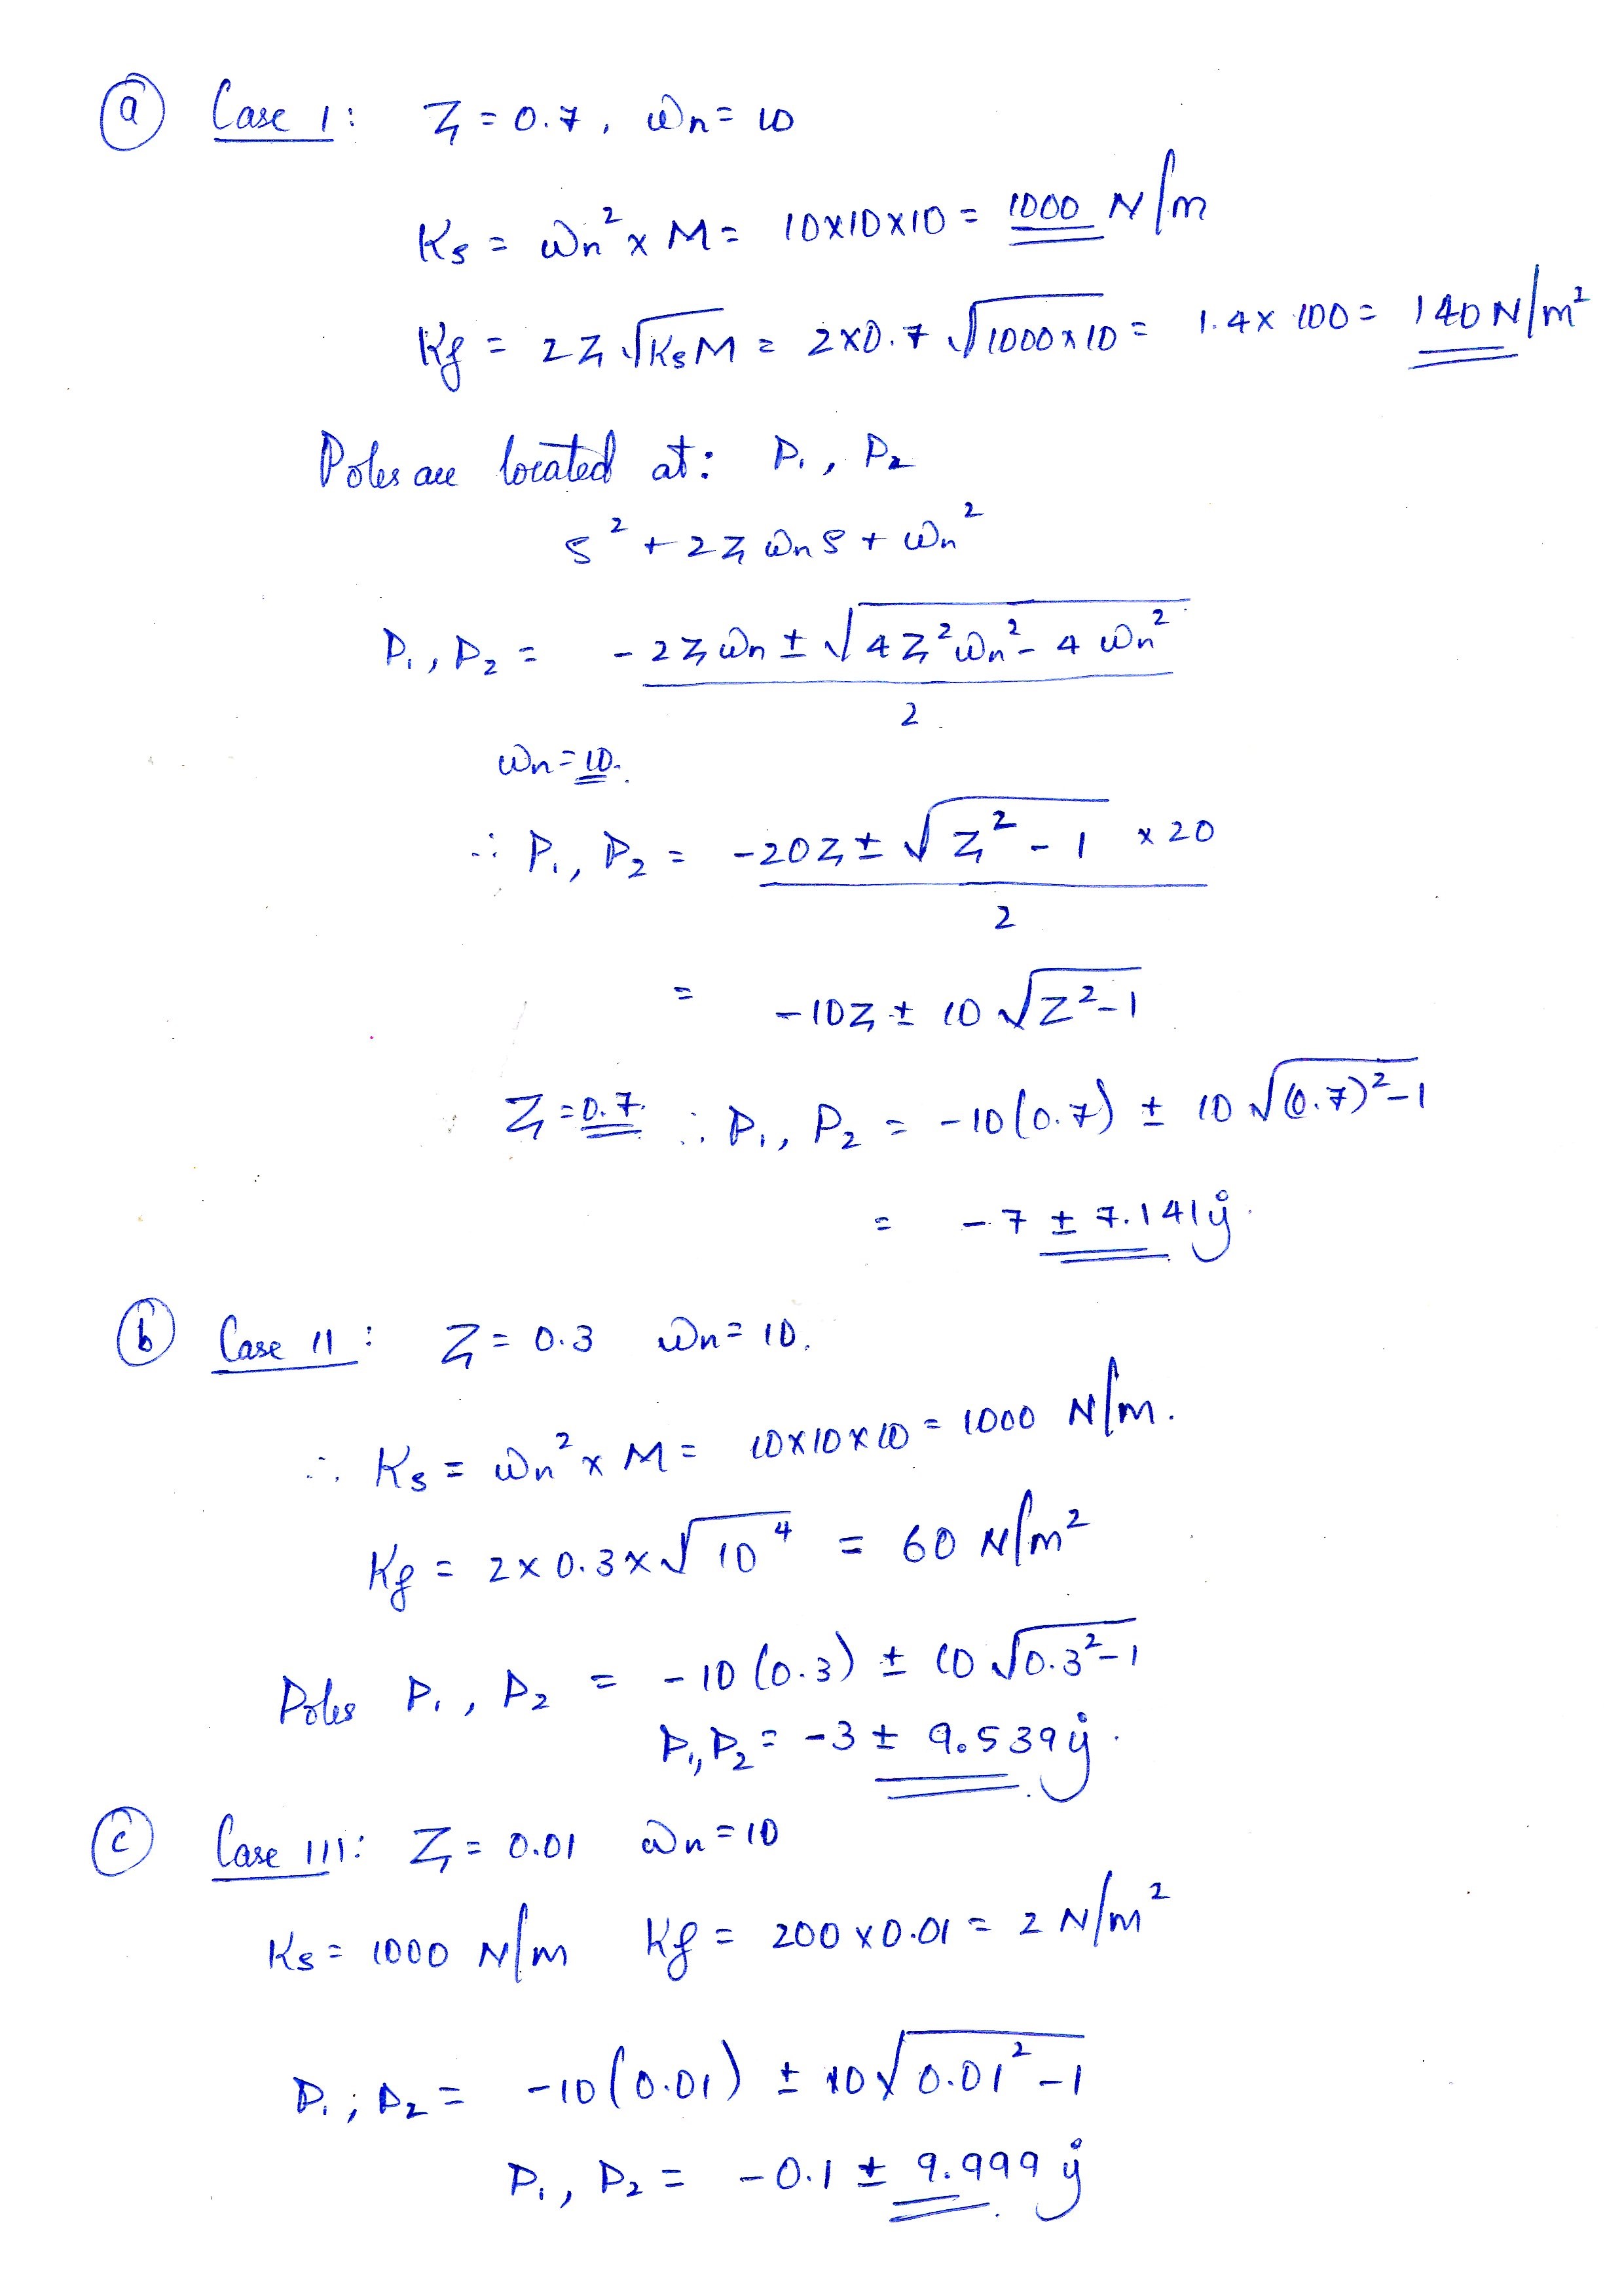 (a) Case 1: ζ = 0.7, ωn = 10
Ks = ωn² x M = 10x10x10 = 1000 N/m
Kf = 2ζ √KsM = 2x0.7 √1000x10 = 1.4x 100 = 140 N/m²
Poles are located at: P1, P2
s² + 2ζ ωn s + ωn²
P1, P2 = -2ζ ωn ± √4ζ²ωn² - 4 ωn²
2
ωn = 10.
∴ P1, P2 = -20ζ ± √ζ² - 1 x 20
2
= -10ζ ± 10 √ζ²-1
ζ = 0.7. ∴ P1, P2 = -10(0.7) ± 10 √(0.7)²-1
= -7 ± 7.141j.
(b) Case II: ζ = 0.3 ωn = 10.
∴ Ks = ωn² x M = 10x10x10 = 1000 N/m.
Kf = 2x0.3x√10⁴ = 60 N/m²
Poles P1, P2 = -10(0.3) ± 10 √0.3²-1
P1, P2 = -3 ± 9.539j.
(c) Case III: ζ = 0.01 ωn = 10
Ks = 1000 N/m Kf = 200x0.01 = 2 N/m²
P1; P2 = -10(0.01) ± 10√0.01²-1
P1, P2 = -0.1 ± 9.999j.